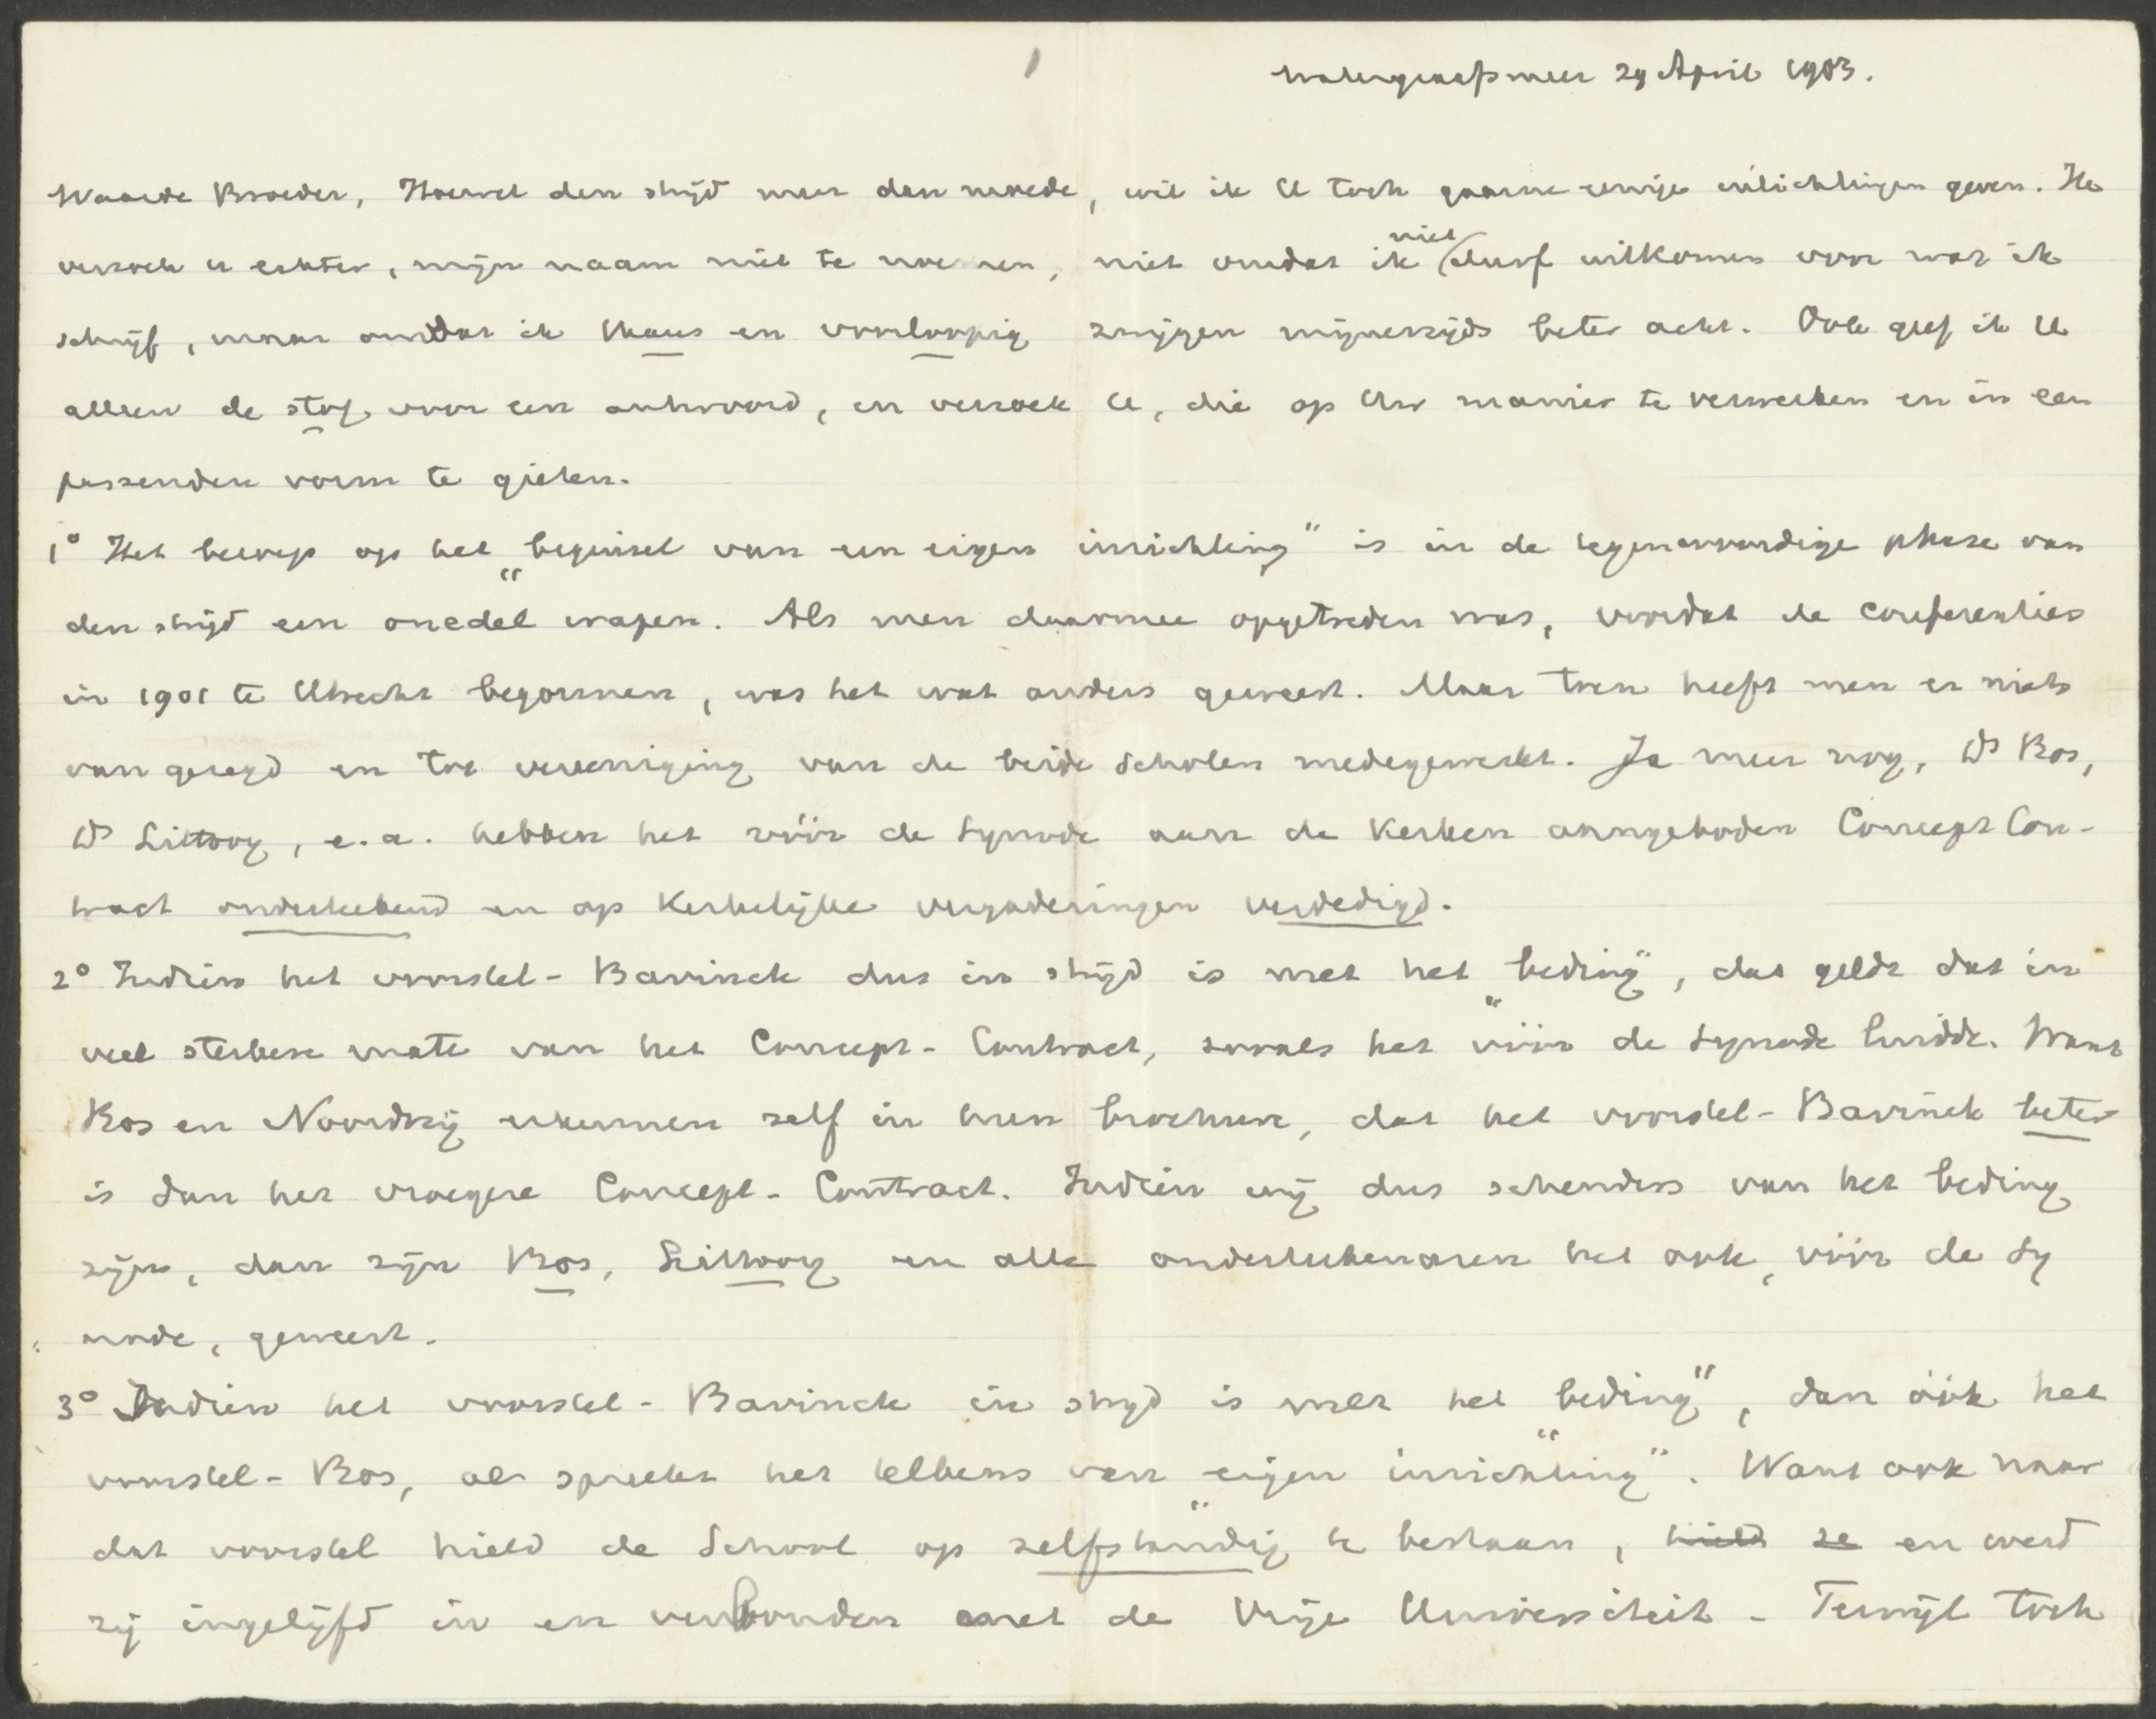 1
Watergraafsmeer 29 April 1903.
Waarde Broeder, Hoewel den strijd meer dan moede, wil ik U toch gaarne eenige inlichtingen geven. Ik
verzoek U echter, mijn naam niet te noemen, niet omdat ik niet durf uitkomen voor wat ik
schrijf, maar omdat ik thans en voorloopig zwijgen mijnerzijds beter acht. Ook geef ik U
alleen de stof voor een antwoord, en verzoek U, die op Uw manier te verwerken en in een
passenden vorm te gieten.
1° Het beroep op het „beginsel van een eigen inrichting" is in de tegenwoordige phase van
den strijd een onedel wapen. Als men daarmee opgetreden was, voordat de conferenties
in 1901 te Utrecht begonnen, was het wat anders geweest. Maar toen heeft men er niets
van gezegd en tot vereeniging van de beide Scholen medegewerkt. Ja meer nog, Ds Bos,
Ds Littooy, e.a. hebben het vóór de Synode aan de Kerken aangeboden Concept Con-
tract onderteekend en op Kerkelijke vergaderingen verdedigd.
2° Indien het voorstel-Bavinck dus in strijd is met het „beding", dat geldt dat in
veel sterkere mate van het Concept-Contract, zooals het vóór de Synode luidde. Want
Bos en Noordtzij erkennen zelf in hun brochure, dat het voorstel-Bavinck beter
is dan het vroegere Concept-Contract. Indien wij dus schenders van het beding
zijn, dan zijn Bos, Littooy en alle onderteekenaren het ook, vóór de Sy
node, geweest.
3° Indien het voorstel-Bavinck in strijd is met het „beding", dan óók het
voorstel-Bos, al spreekt het telkens van „eigen inrichting". Want ook naar
dat voorstel hield de School op zelfstandig te bestaan, hield ze en werd
zij ingelijfd in en verbonden met de Vrije Universiteit. Terwijl toch